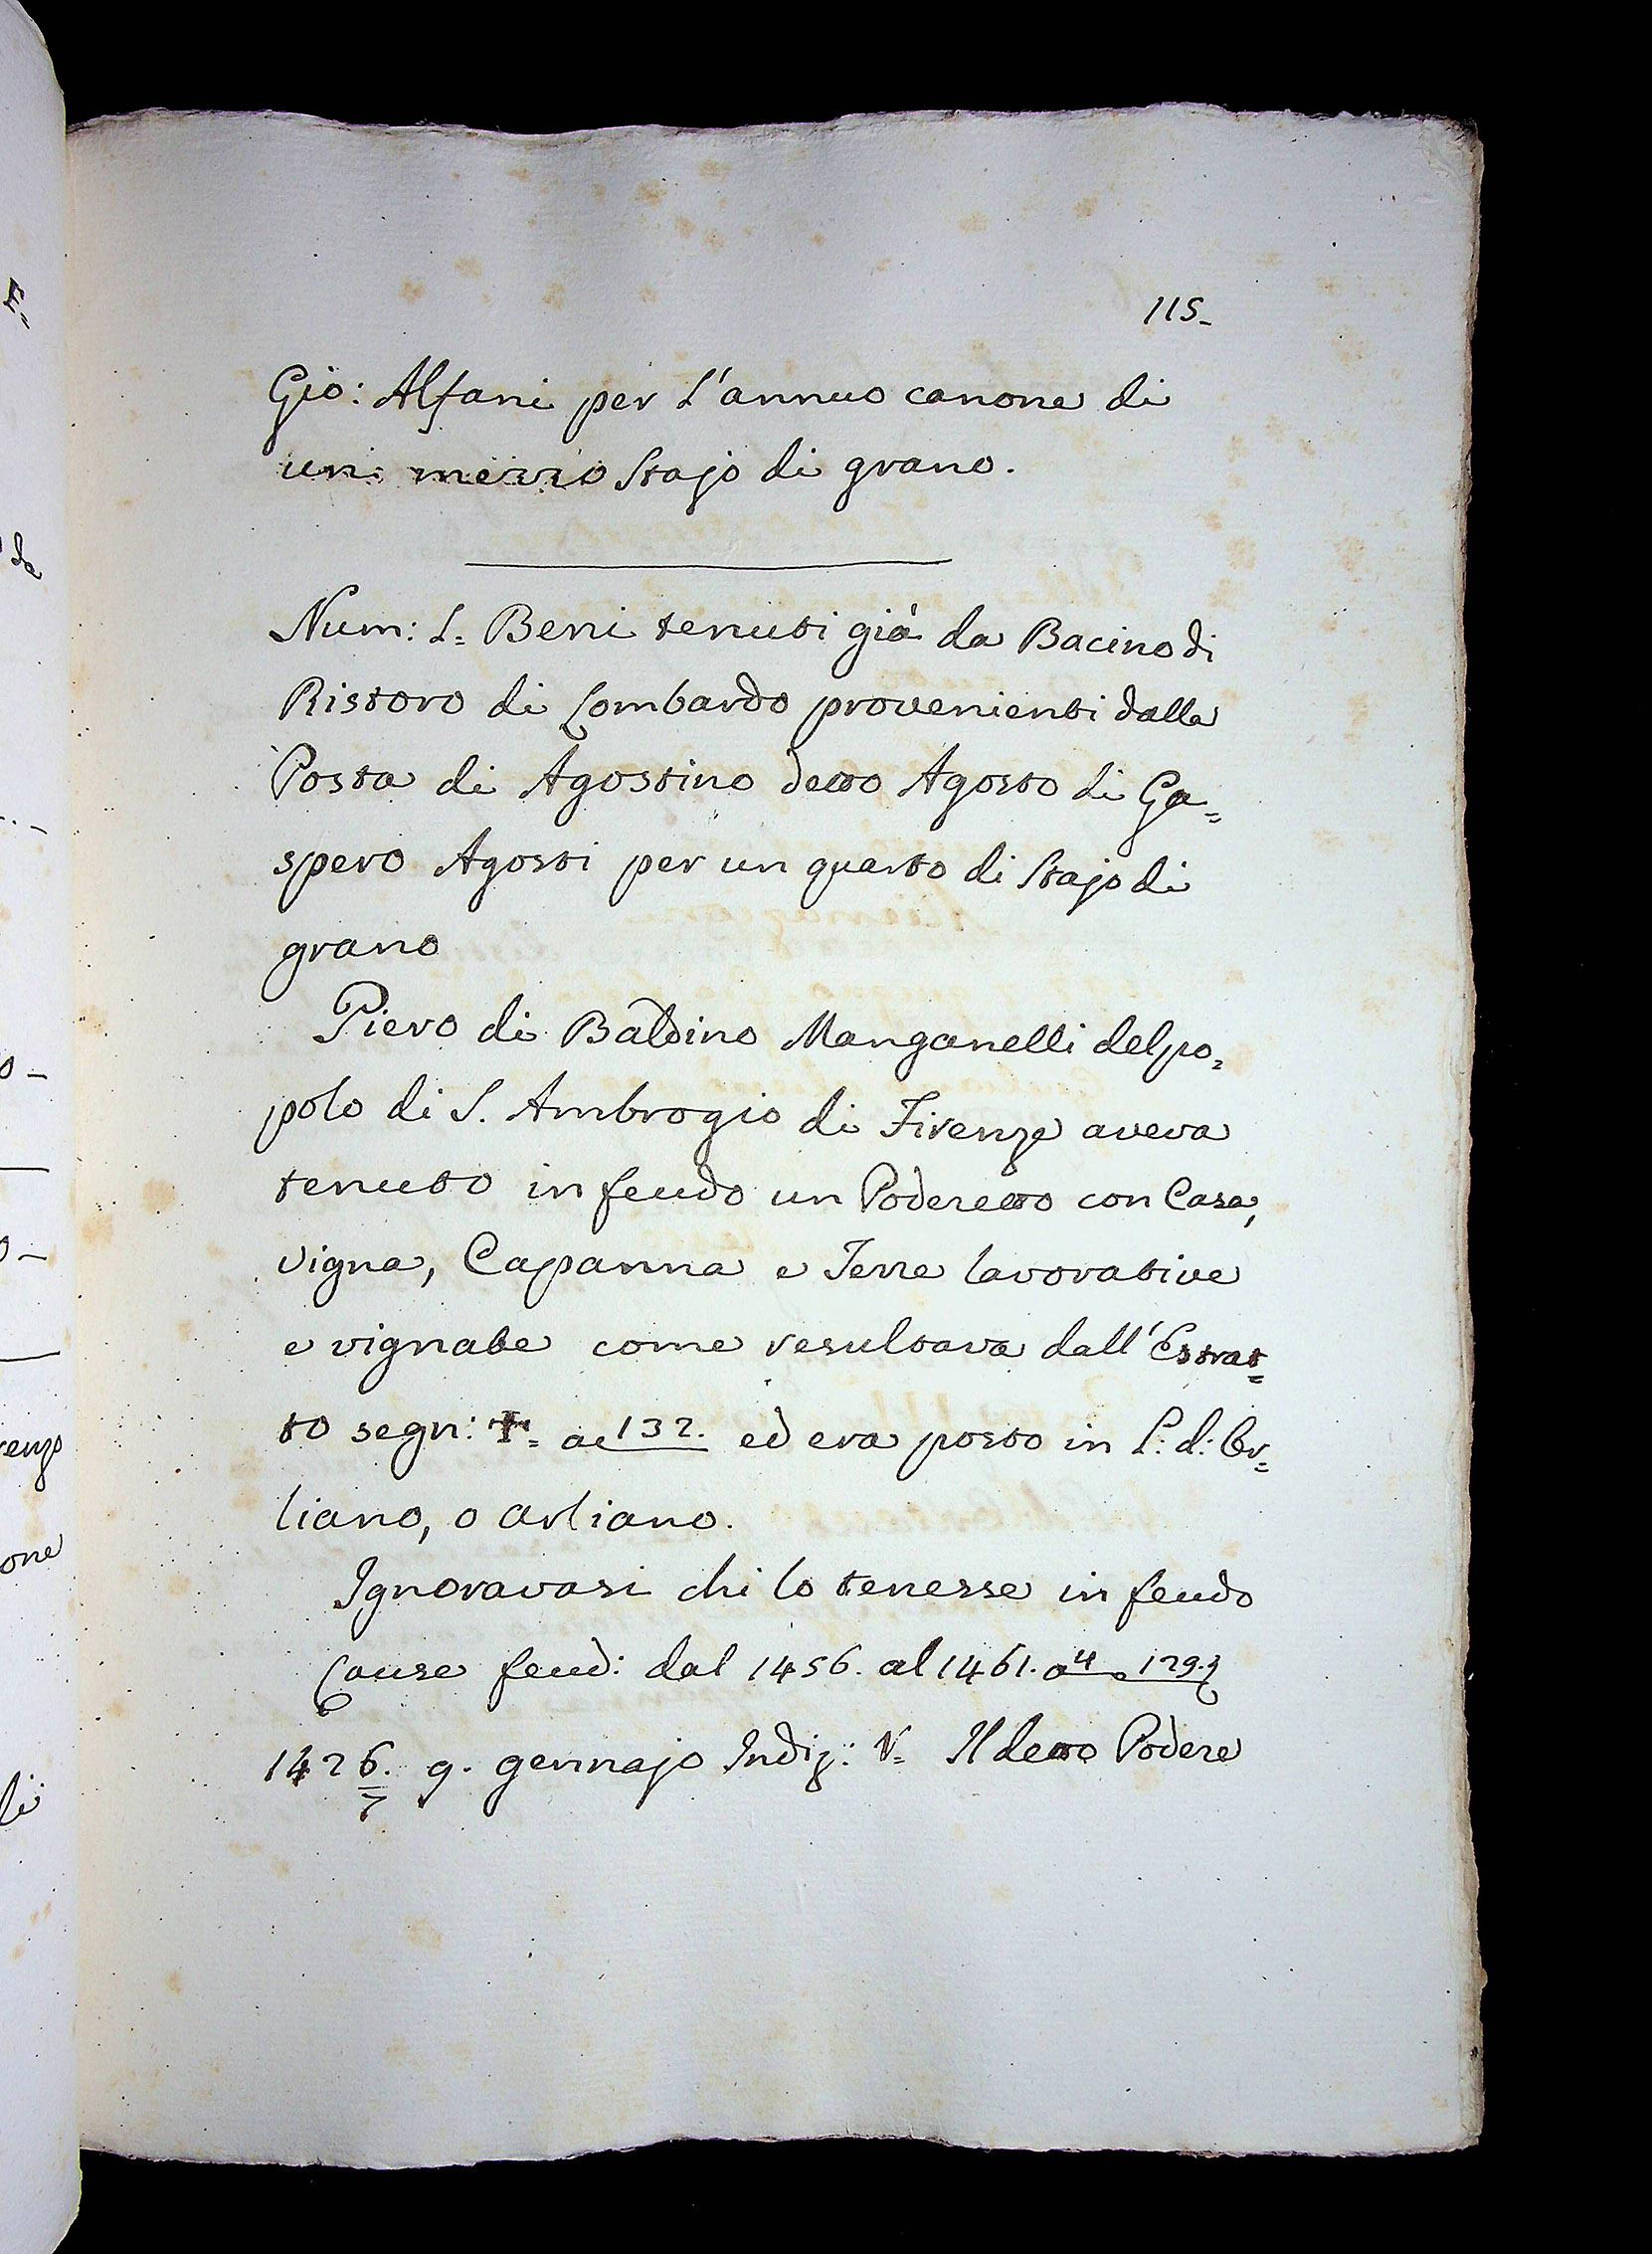 115_
Gio: Alfani per l'annuo canone di
un mezzo stajo di grano.
Num: L= Beni tenuti già da Bacino di
Ristoro di Lombardo provenienti dalla
Posta di Agostino detto Agosto di Ga=
spero Agosti per un quarto di stajo di
grano
Piero di Baldino Manganelli del po=
polo di S. Ambrogio di Firenze aveva
tenuto in feudo un Poderetto con Casa,
vigna, Capanna e Terre lavorative
e vignate come resultava dall'Estrat=
to segn: T= ac 132. ed era posto in L: d: Or=
liano, o Arliano.
Ignoravasi chi lo tenesse in feudo
Cause feud: dal 1456. al 1461. a 4 e 129.
1426. 9. gennajo Indiz: V= Il detto Podere
7
E=
da
o_
o_
renze
one
li